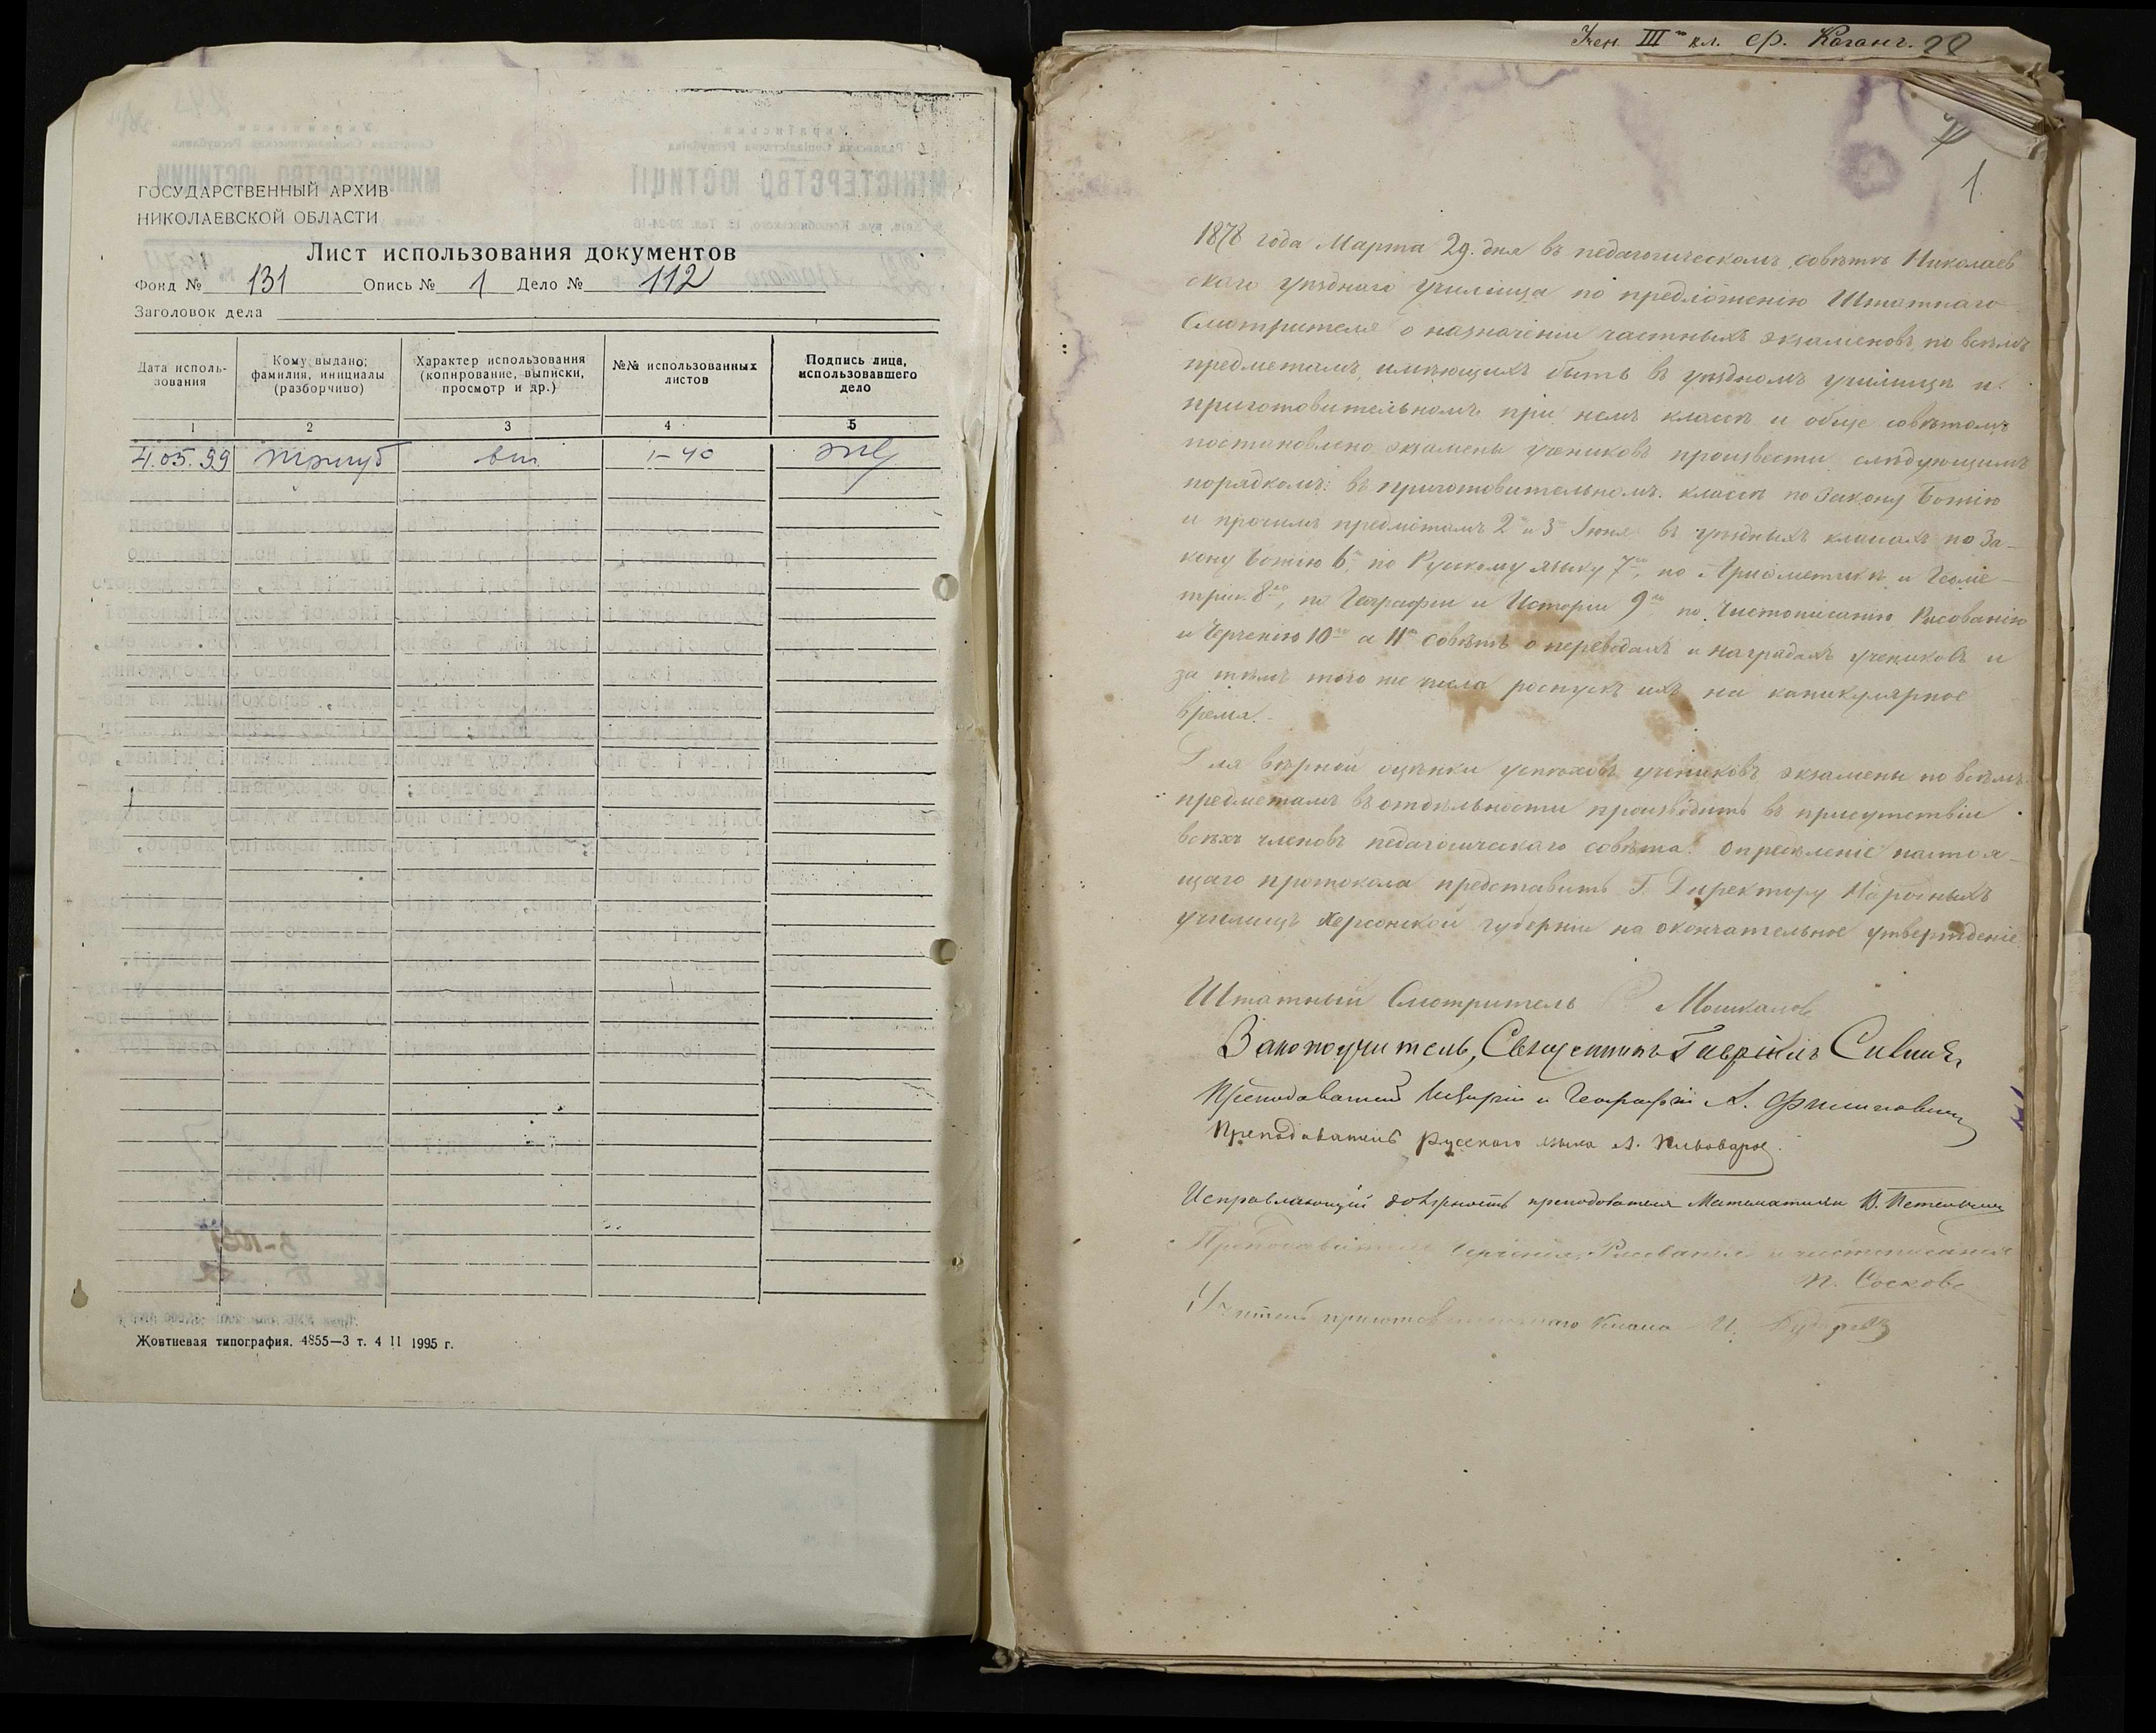 ГОСУДАРСТВЕННЫЙ АРХИВ
НИКОЛАЕВСКОЙ ОБЛАСТИ
Лист использования документов
Фонд № 131 Опись № 1 Дело № 112
Заголовок дела
Дата исполь-
зования
Кому выдано;
фамилия, инициалы
(разборчиво)
Характер использования
(копирование, выписки,
просмотр и др.)
№№ использованных
листов
Подпись лица,
использовавшего
дело
1 2 3 4 5
4.05.99 1-40
Жовтневая типография. 4855—3 т. 4 II 1995 г.
Учен. III кл. Ср. Коганъ.
1.
1878 года Марта 29. дня въ педагогическомъ совѣтѣ Николаев
скаго уѣзднаго училища по предложенію Штатнаго
Смотрителя о назначеніи частныхъ экзаменовъ по всѣмъ
предметамъ, имѣющихъ быть въ уѣздномъ училищѣ и
приготовительномъ при немъ классѣ и обще совѣтомъ
постановлено экзамены учениковъ произвести слѣдующимъ
порядкомъ: въ приготовительномъ классѣ по Закону Божію
и прочимъ предметамъ 2 и 3 Іюня въ уѣздныхъ классахъ по За-
кону Божію 6, по Русскому языку 7го, по Ариѳметикѣ и Геоме-
тріи 8го, по Географіи и Исторіи 9го по Чистописанію Рисованію
и Черченію 10го а 11го совѣтъ о переводахъ и наградахъ учениковъ и
за тѣмъ того же числа роспускъ ихъ на каникулярное
время.
Для вѣрной оцѣнки успѣховъ учениковъ экзамены по всѣмъ
предметамъ въ отдѣльности производить въ присутствіи
всѣхъ членовъ педагогическаго совѣта. Опредѣленіе настоя-
щаго протокола представить Г. Директору Народныхъ
училищъ Херсонской губерніи на окончательное утвержденіе.
Штатный Смотритель Мошкаловъ
Законоучитель, Священникъ Гавріилъ
Преподаватель Исторіи и Географіи А. Филиповичъ
Преподаватель Русскаго языка А. Пивоваровъ
Исправляющій должность преподователя Математики В.
Преподаватель Черченія, Рисованія и чистописанія
П. Сосковъ
Учитель приготовительнаго Класса И.